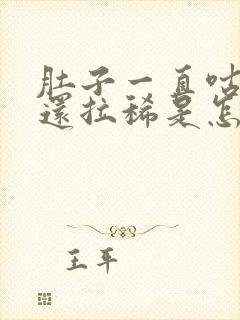 肚子一直咕
還拉稀是怎
王平